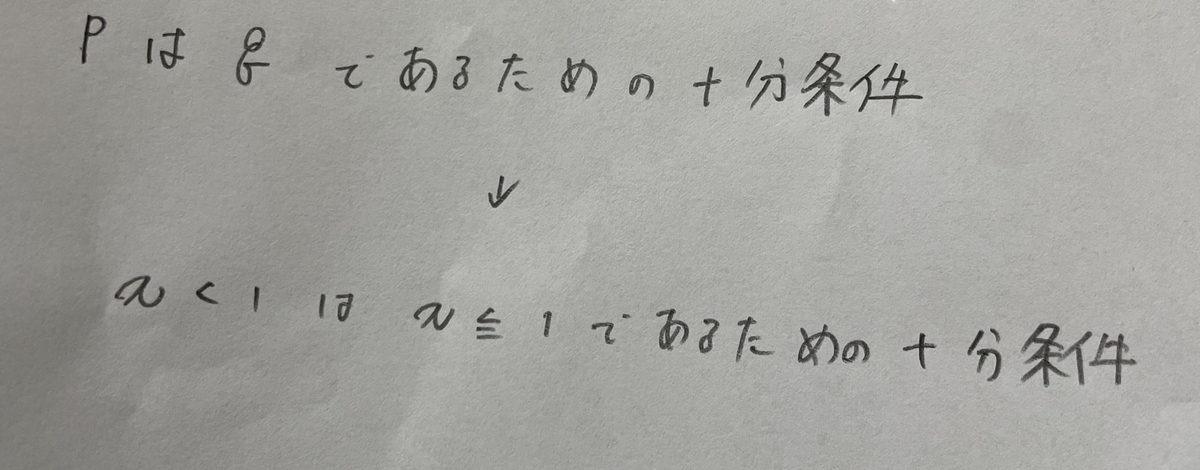 Pは qであるための十分条件
↓
x<1は x≦1であるための十分条件